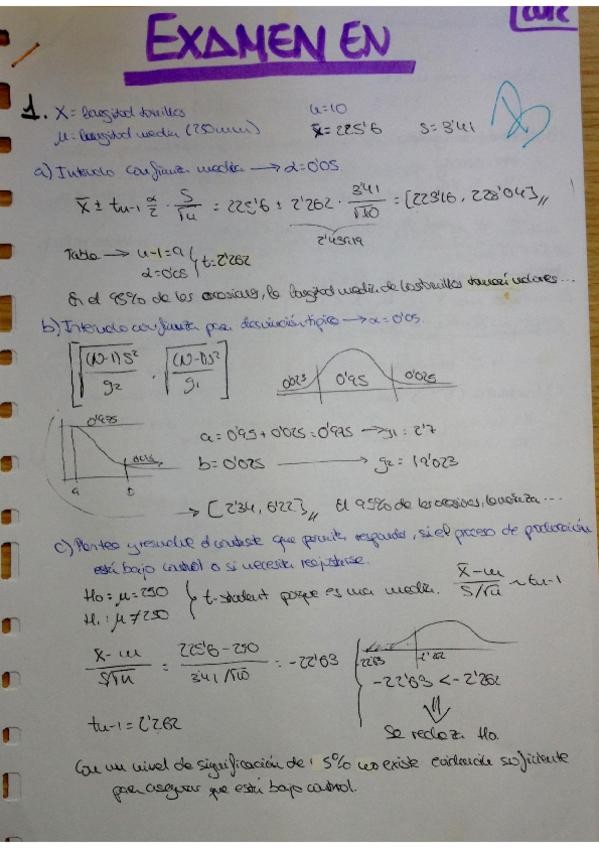 EXAMEN EN
1. X = longitud tornillos n=10
μ = longitud media (250mm) x̄ = 225'6 s = 3'41
a) Intervalo confianza media → α=0'05
x̄ ± tn-1 α/2 · S/√n = 225'6 ± 2'262 · 3'41/√10 = [223'16, 228'04]//
2'43919
Tabla → n-1=9 α=0'05 } t=2'262
En el 95% de las ocasiones, la longitud media de los tornillos tomará valores...
b) Intervalo confianza para desviación típica → α=0'05
[√((N-1)S²/g2) , √((N-1)S²/g1)]
0'025 0'95 0'025
0'975
0'025
a b
a = 0'95 + 0'025 = 0'975 → g1 = 2'7
b = 0'025 → g2 = 19'023
→ [2'34, 6'22]// El 95% de las ocasiones, la varianza ...
c) Plantea y resuelve el contraste que permita responder, si el proceso de producción
está bajo control o si necesita reajustarse.
H0: μ = 250
H1: μ ≠ 250 } t-student porque es una media. x̄-m / S/√n ~ tn-1
x̄-m / S/√n = 225'6-250 / 3'41/√10 = -22'63
-22'63 -2'262
-22'63 < -2'262
tn-1 = 2'262
⇓
Se rechaza H0.
Con un nivel de significación de 5% no existe evidencia suficiente
para asegurar que está bajo control.